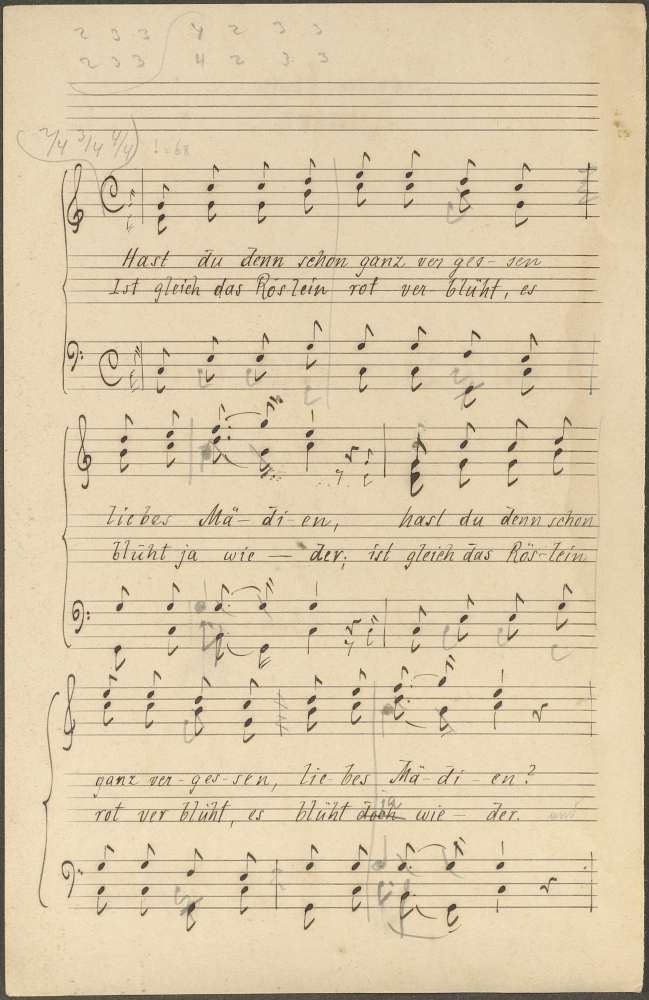 2 3 3 4 2 3 3
2 3 3 4 2 3 3
2/4 3/4 4/4 = 68
Hast du denn schon ganz ver ges- sen
Ist gleich das Röslein rot ver- blüht, es
liebes Mä- di- en, hast du denn schon
blüht ja wie — der; ist gleich das Rös-lein
ganz ver- ges- sen, lie- bes Mä- di- en?
ja
rot ver blüht, es blüht doch wie — der.